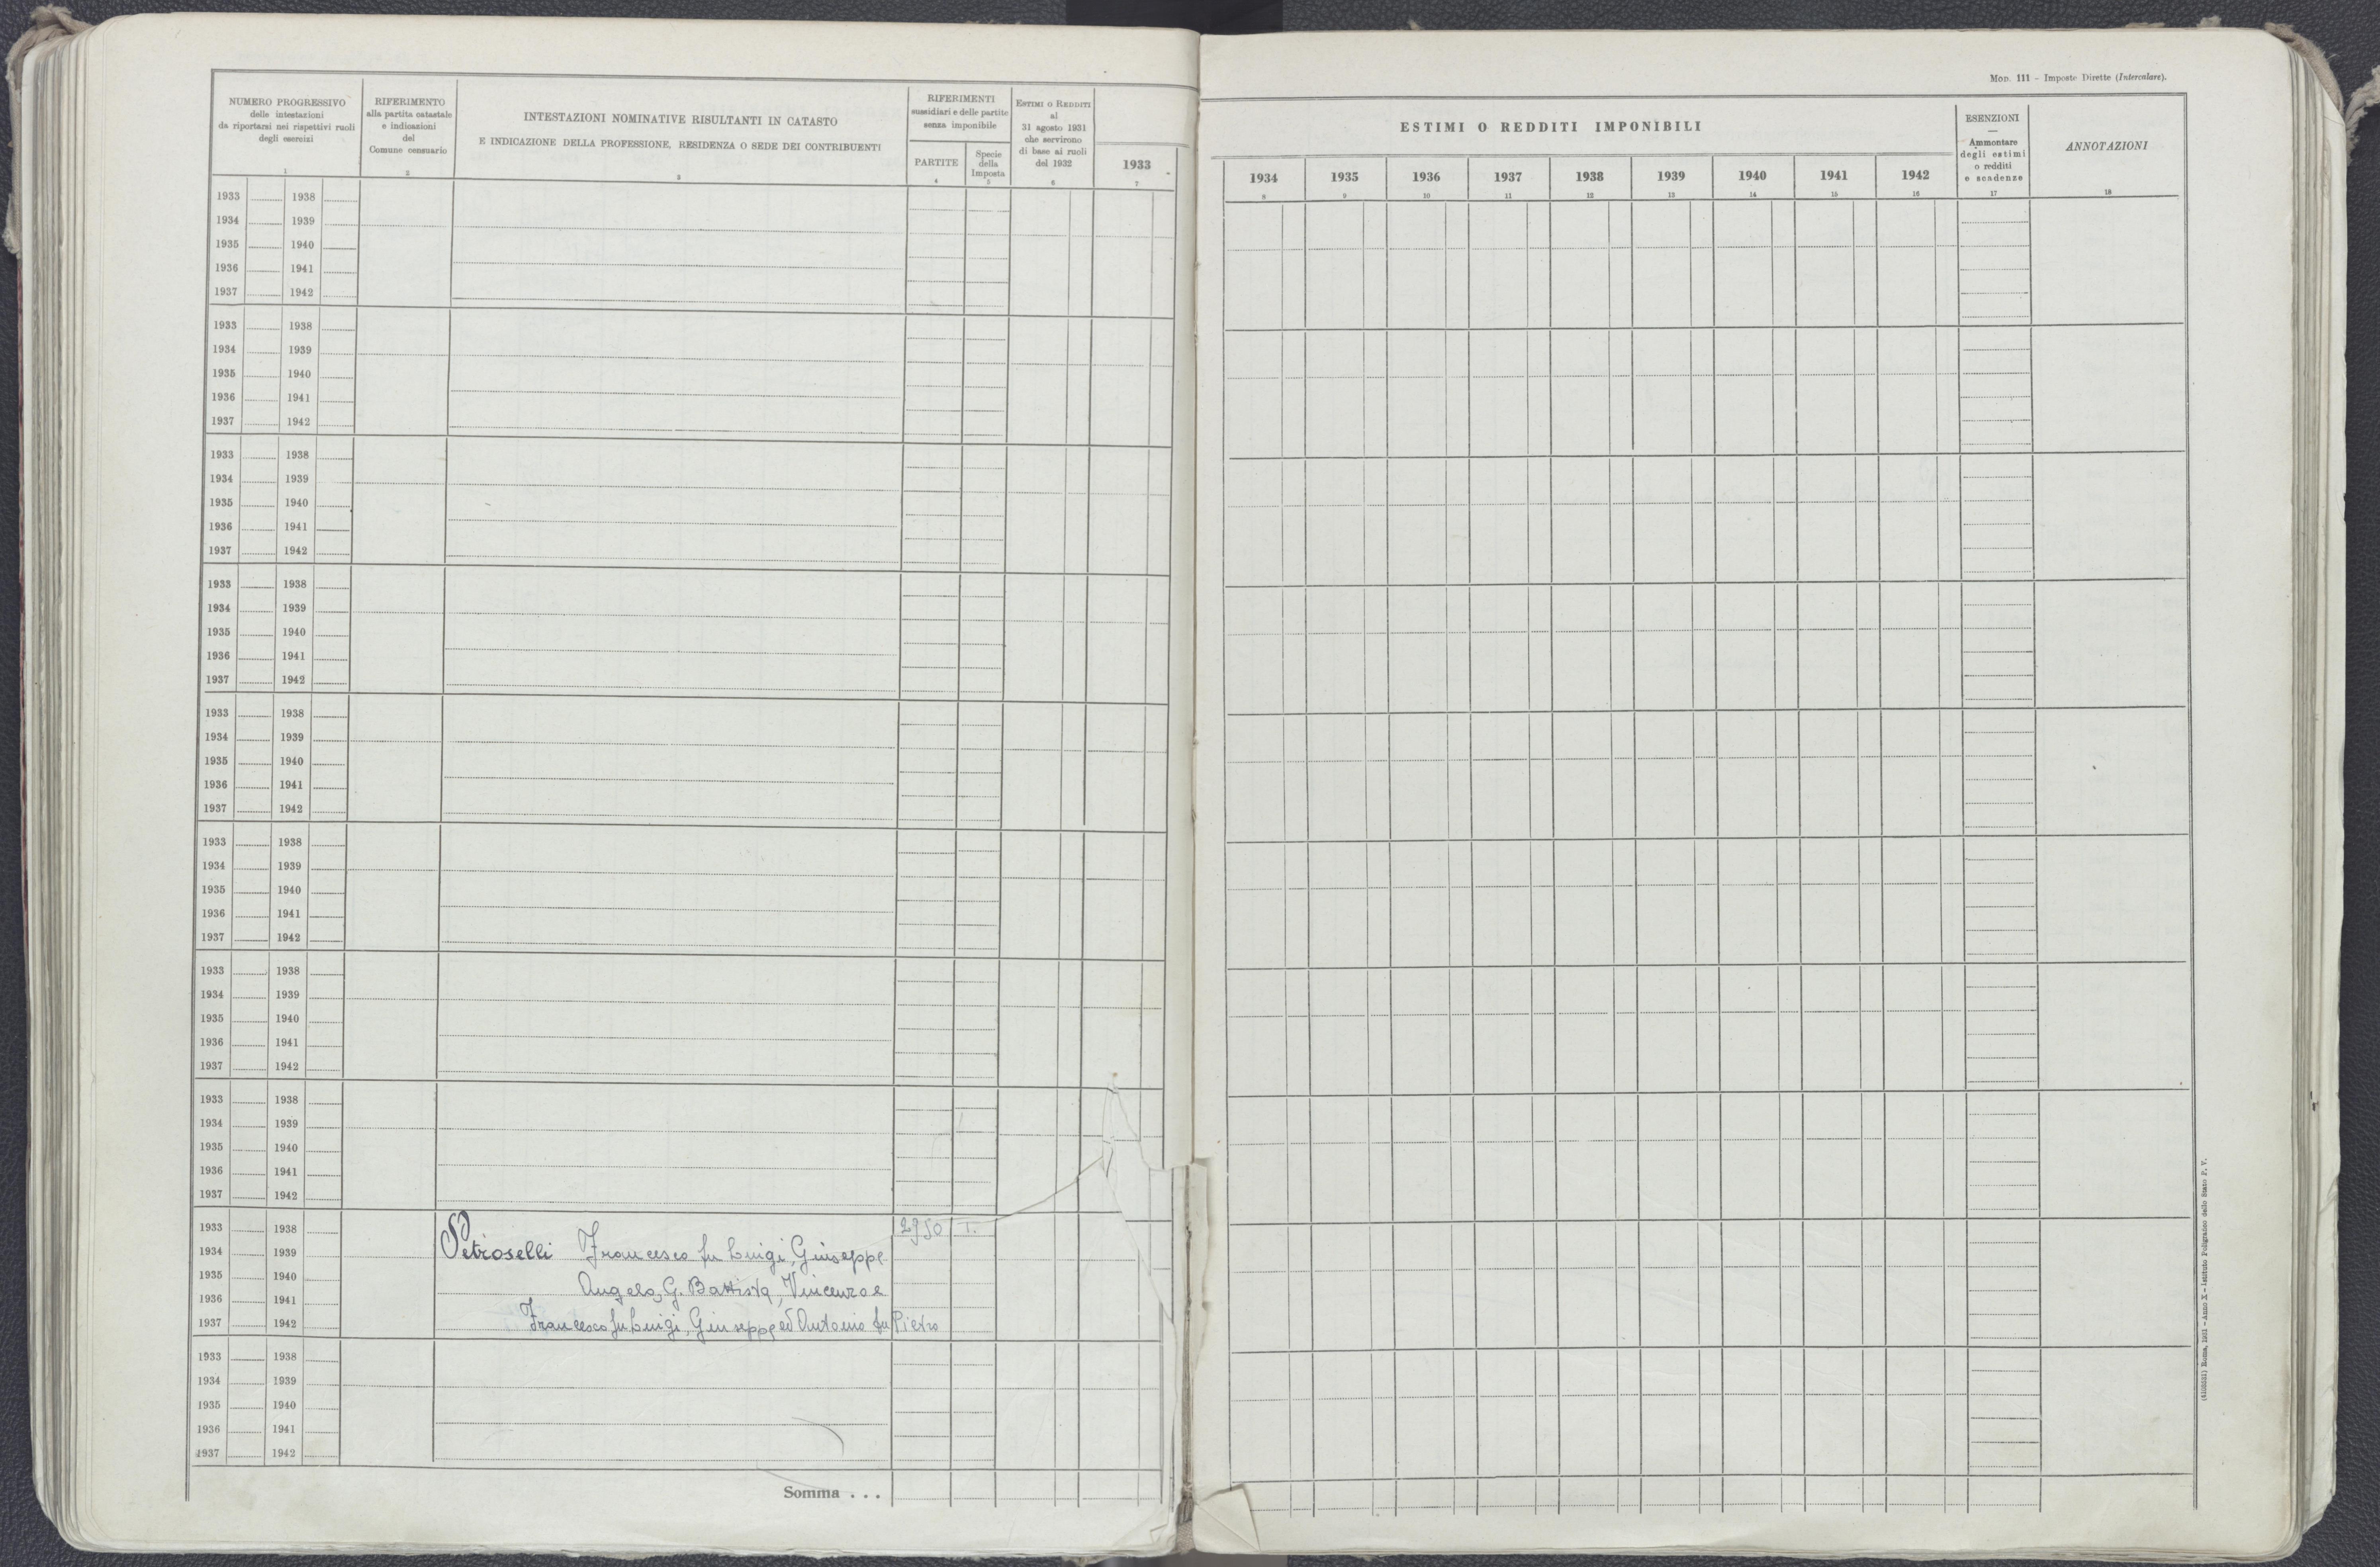 MOD. 111 - Imposte Dirette (Intercalare).
NUMERO PROGRESSIVO
delle intestazioni
da riportarsi nei rispettivi ruoli
degli esercizi
1
RIFERIMENTO
alla partita catastale
e indicazioni
del
Comune censuario
2
INTESTAZIONI NOMINATIVE RISULTANTI IN CATASTO
E INDICAZIONE DELLA PROFESSIONE, RESIDENZA O SEDE DEI CONTRIBUENTI
3
RIFERIMENTI
sussidiari e delle partite
senza imponibile
PARTITE
4
Specie
della
Imposta
5
ESTIMI O REDDITI
al
31 agosto 1931
che servirono
di base ai ruoli
del 1932
6
1933
7
ESTIMI O REDDITI IMPONIBILI
1934 1935 1936 1937 1938 1939 1940 1941 1942
8 9 10 11 12 13 14 15 16
ESENZIONI
—
Ammontare
degli estimi
o redditi
e scadenze
17
ANNOTAZIONI
18
1933 1938
1934 1939
1935 1940
1936 1941
1937 1942
1933 1938
1934 1939
1935 1940
1936 1941
1937 1942
1933 1938
1934 1939
1935 1940
1936 1941
1937 1942
1933 1938
1934 1939
1935 1940
1936 1941
1937 1942
1933 1938
1934 1939
1935 1940
1936 1941
1937 1942
1933 1938
1934 1939
1935 1940
1936 1941
1937 1942
1933 1938
1934 1939
1935 1940
1936 1941
1937 1942
1933 1938
1934 1939
1935 1940
1936 1941
1937 1942
1933 1938 2950 T.
1934 1939 Petroselli Francesco fu Luigi, Giuseppe
1935 1940 Angelo, G. Battista, Vincenzo e
1936 1941
1937 1942 Francesco fu Luigi, Giuseppe ed Antonio fu Pietro
1933 1938
1934 1939
1935 1940
1936 1941
1937 1942
Somma . . .
(4103031) Roma, 1931 - Anno X - Istituto Poligrafico dello Stato P. V.